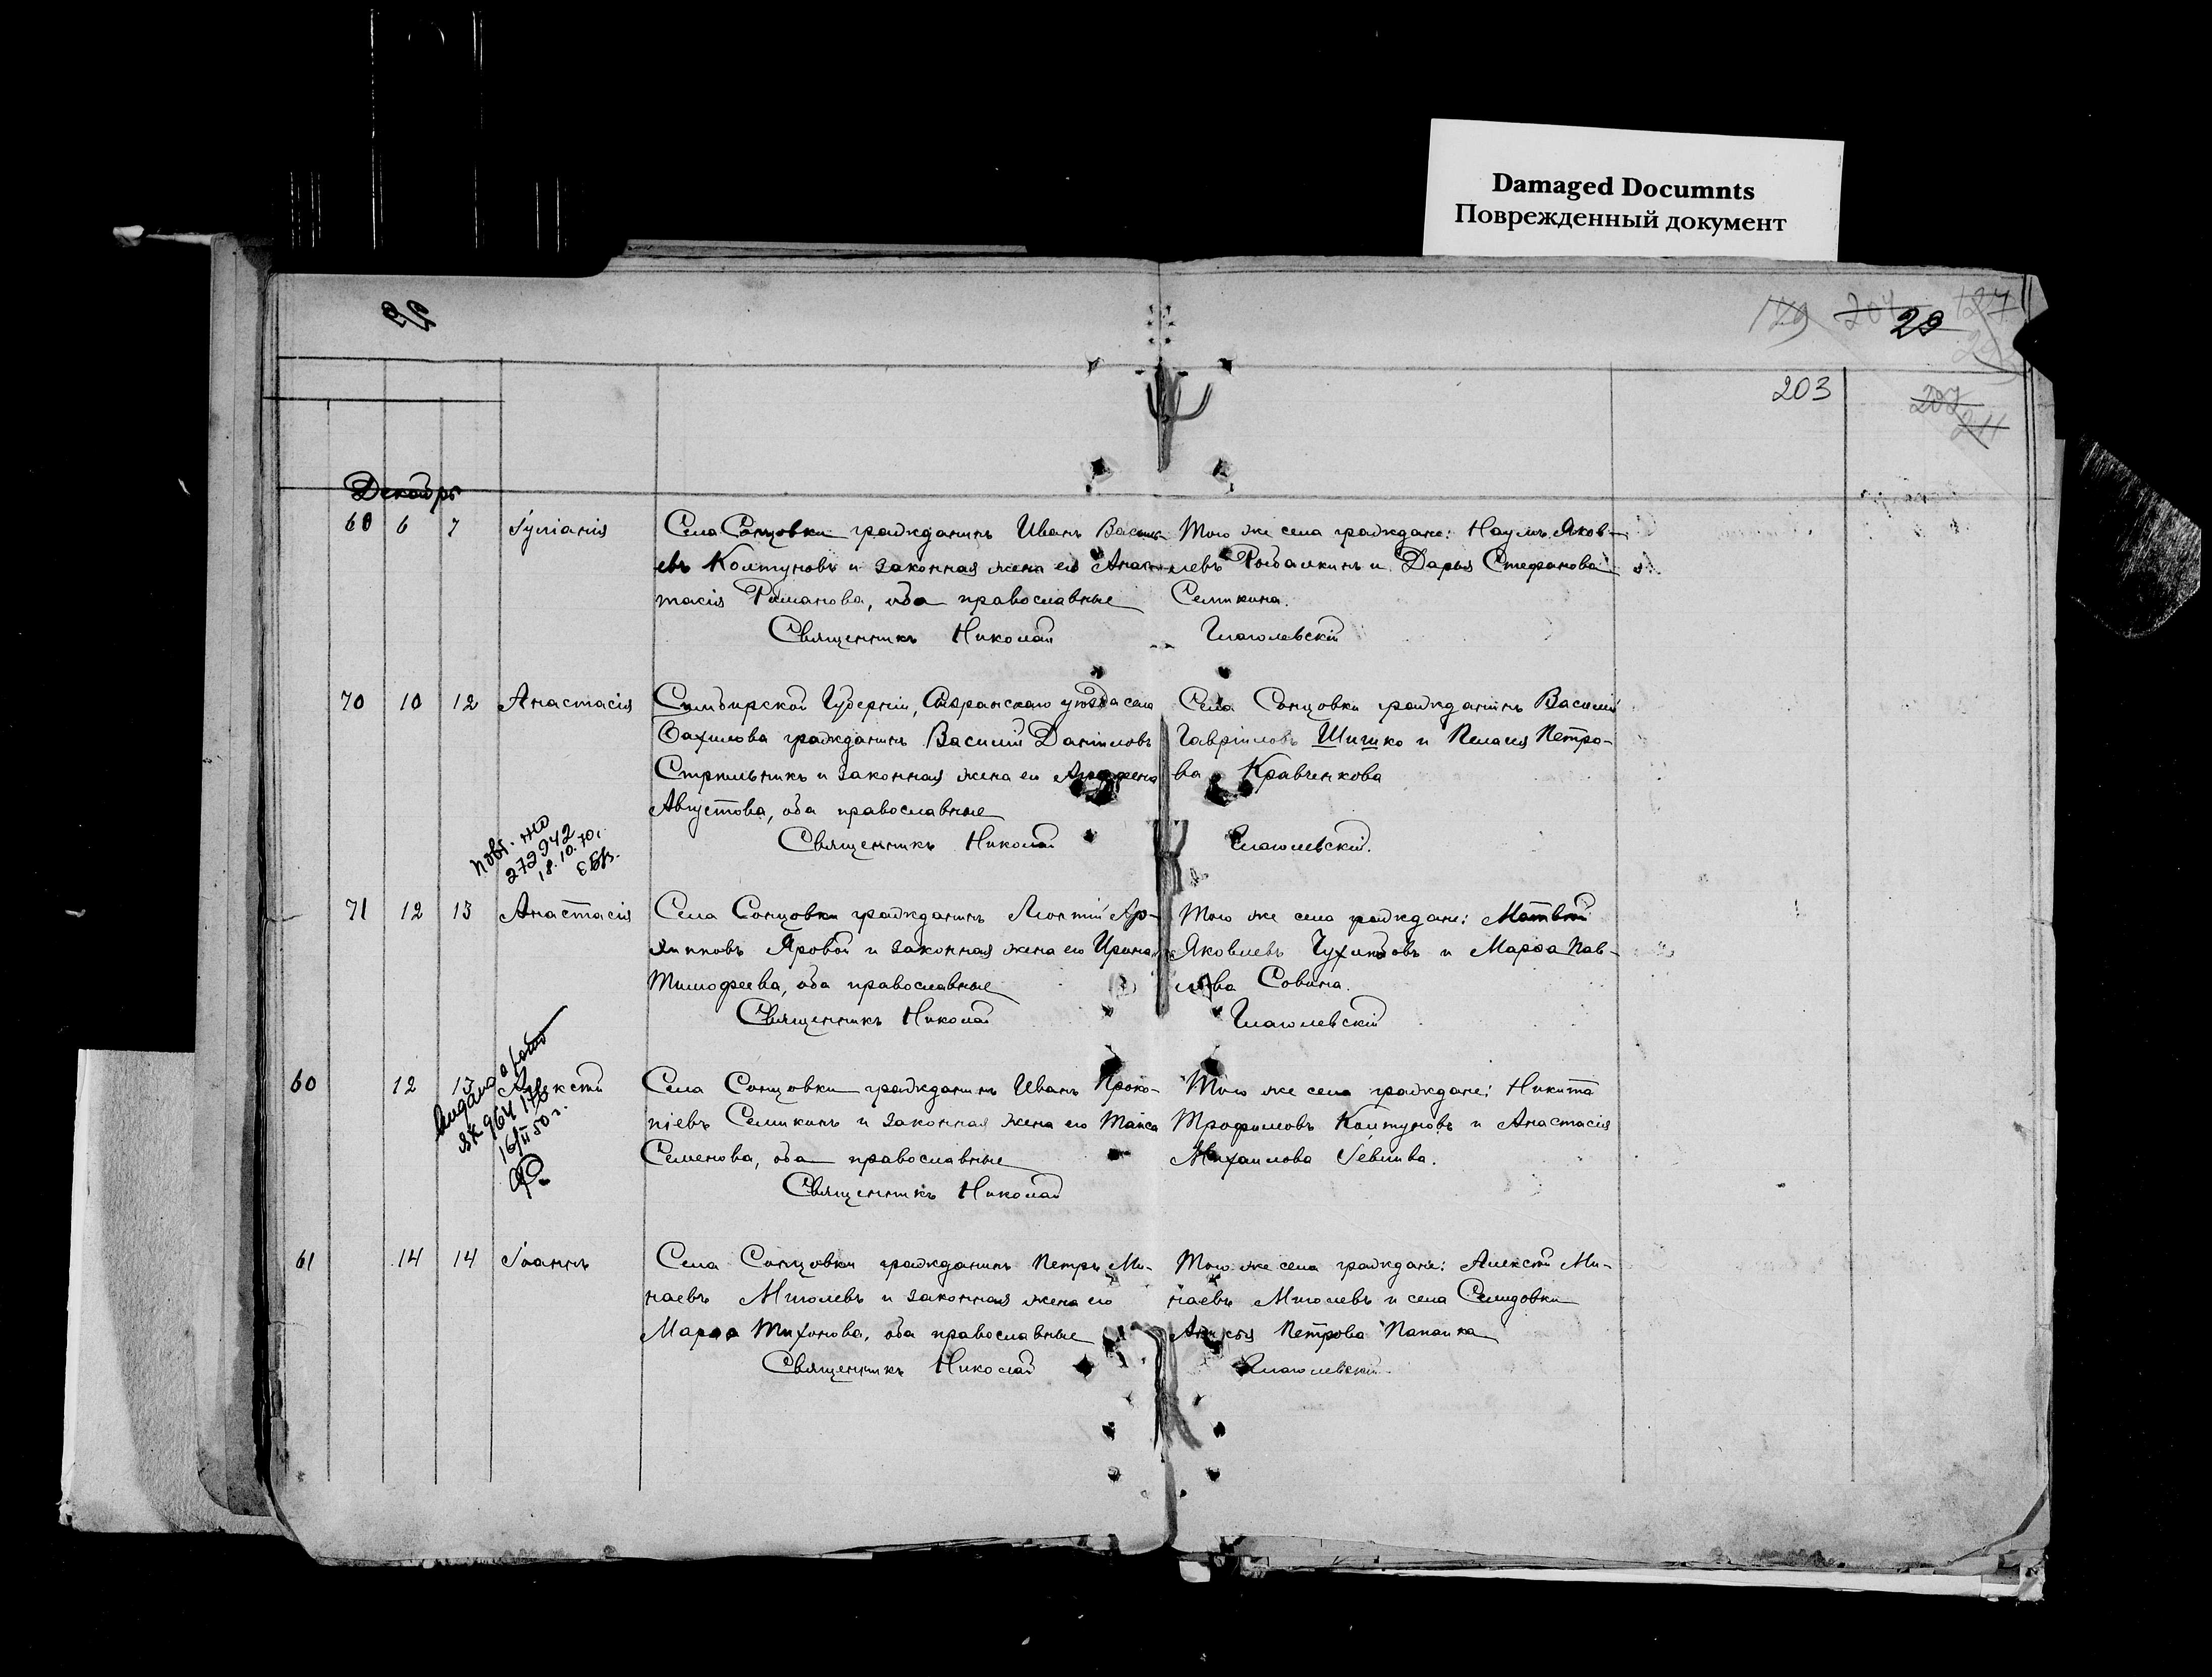 Damaged Documnts
Поврежденный документ
29
203
Декабрь
6 7 Іуліанія
Села Сонцовки гражданинъ Иванъ Василь
евъ Колтуновъ и законная жена его Анас
тасія Романова, оба православные
Священникъ Николай
Того же села граждане: Наумъ Яков-
левъ Рыбалкинъ и Дарья Стефанова
Семикина.
Глаголевскій
70 10 12 Анастасія
Симбирской Губерніи, Сызранскаго уѣзда села
гражданинъ Василій Даниловъ
Стрѣльникъ и законная жена его
Августова, оба православные
Священникъ Николай
Села Сонцовки гражданинъ Василій
Гавріиловъ Шишко и Пелагія Петро-
ва Кравченкова
Глаголевскій.
18.10.70г.
71 12 13 Анастасія
Села Сонцовки гражданинъ Леонтій Ар-
хиповъ Яровой и законная жена его Ирина
Тимофеева, оба православные
Священникъ Николай
Того же села граждане: Матвѣй
Яковлевъ и Марѳа Пав-
лова Совина.
Глаголевскій
60 12 13 Алексѣй
16/II 50 г.
Села Сонцовки гражданинъ Иванъ Проко-
піевъ Семикинъ и законная жена его Таиса
Семенова, оба православные
Священникъ Николай
Того же села граждане: Никита
Трофимовъ Колтуновъ и Анастасія
Михаилова Іевлива.
61 14 14 Іоаннъ
Села Сонцовки гражданинъ Петръ Ми-
наевъ Миголевъ и законная жена его
Марѳа Тихонова, оба православные
Священникъ Николай
Того же села граждане: Алексѣй Ми-
наевъ Миголевъ и села Селидовки
Анисья Петрова Папаика
Глаголевскій.